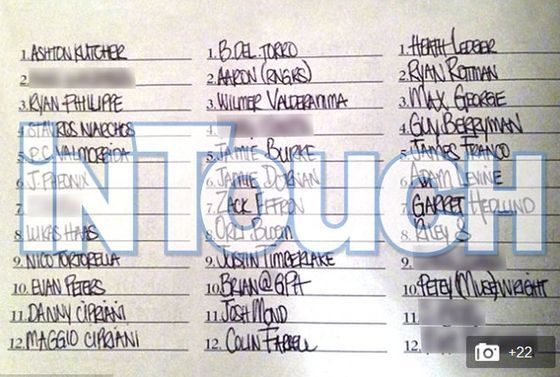 1. ASHTON KUTCHER
2.
3. RYAN PHILIPPE
4. STAVROS NIARCHOS
5. P.C. VALMORBIDA
6. J. PHEONIX
7.
8. LUKAS HAAS
9. NICO TORTORELLA
10. EVAN PETERS
11. DANNY CIPRIANI
12. MAGGIO CIPRIANI
1. B. DEL TORRO
2. AARON (RNGRS)
3. WILMER VALDERAMMA
4.
5. JAMIE BURKE
6. JAMIE DORNAN
7. ZACK EFFRON
8. ORLI BLOOM
9. JUSTIN TIMBERLAKE
10. BRIAN@GPH
11. JOSH MOND
12. COLIN FARRELL
1. HEATH LEDGER
2. RYAN ROTTMAN
3. MAX GEORGE
4. GUY BERRYMAN
5. JAMES FRANCO
6. ADAM LEVINE
7. GARRET HEDLUND
8. RILEY S
9.
10. PETEY (MUSE) WRIGHT
11.
12.
INTouch
+22